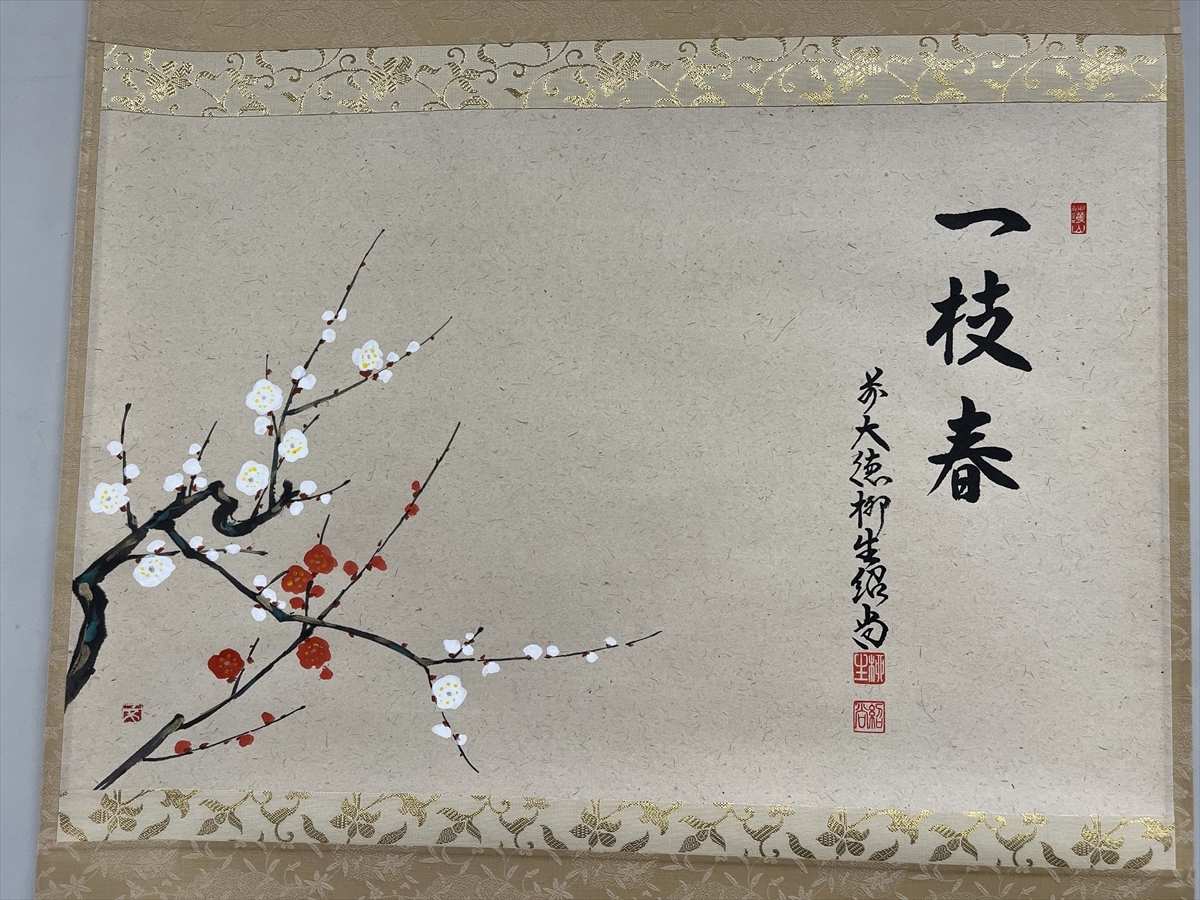 一枝春
前大徳柳生紹尚
柳生
紹尚